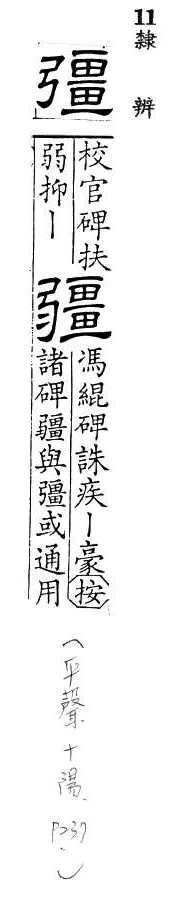 11 隸辨
彊
校官碑扶
弱抑丨
疆
馮緄碑誅疾丨豪按
諸碑疆與彊或通用
(平聲 十陽、P237.)